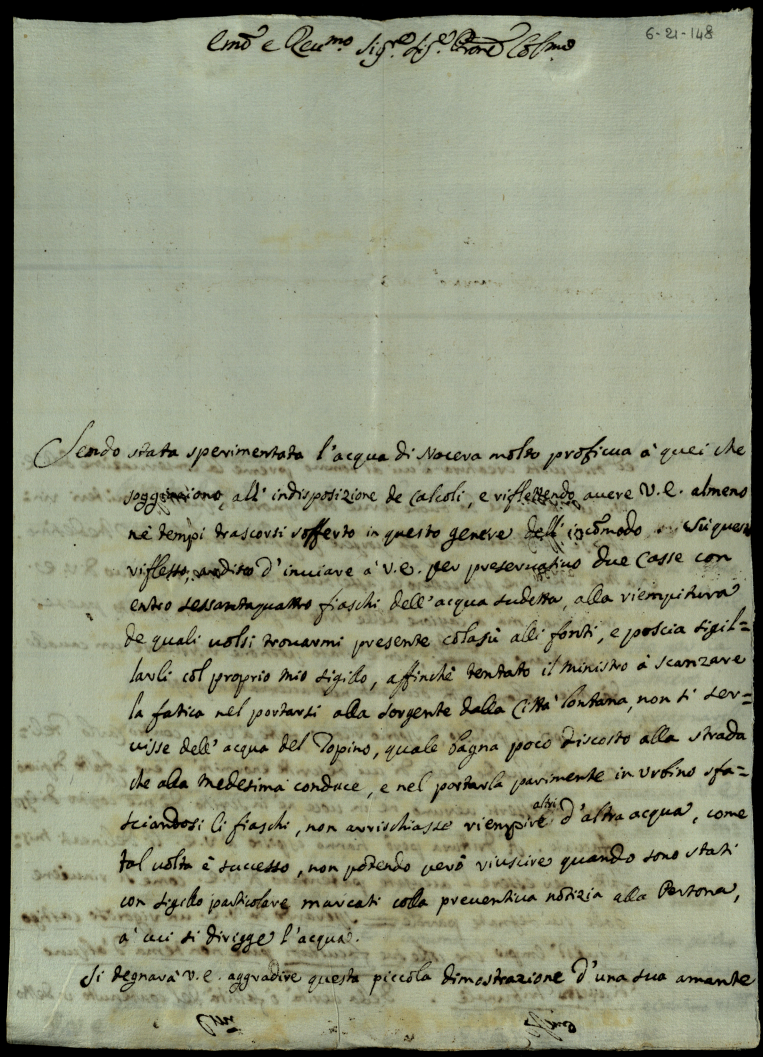 6-21-148
Emo e Reumo Sigre Sige Prone Colmo
Sendo stata sperimentata l'acqua di Nocera molto proficua à quei che
soggiaciono, all' indisposizione de Calcoli, e riflettendo auere V.E. almeno
nè tempi trascorsi sofferto in questo genere dell' incomodo
riflesso, ardito d'inuiare à V.E. per preseruatiuo due Casse con
entro sessantaquattro fiaschi dell'acqua sudetta, alla riempitura
de quali uolsi trouarmi presente colasù alli fonti, e poscia sigil=
larli col proprio mio sigillo, affinchè tentato il Ministro à scanzare
la fatica nel portarsi alla sorgente dalla Città lontana, non si ser=
uisse dell' acqua del Topino, quale bagna poco discosto alla strada
che alla medesima conduce, e nel portarla parimente in Urbino sfa=
sciandosi li fiaschi, non arrischiasse riempire altri d'altra acqua, come
tal uolta è successo, non potendo però riuscire quando sono stati
con sigillo particolare marcati colla preuentiua notizia alla Persona,
à cui si dirigge l'acqua.
Si degnarà V.E. aggradire questa piccola dimostrazione d'una sua amante